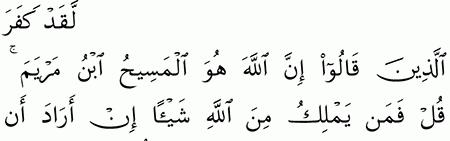 لَّقَدْ كَفَرَ
ٱلَّذِينَ قَالُوٓا۟ إِنَّ ٱللَّهَ هُوَ ٱلْمَسِيحُ ٱبْنُ مَرْيَمَ ۚ
قُلْ فَمَن يَمْلِكُ مِنَ ٱللَّهِ شَيْـًٔا إِنْ أَرَادَ أَن